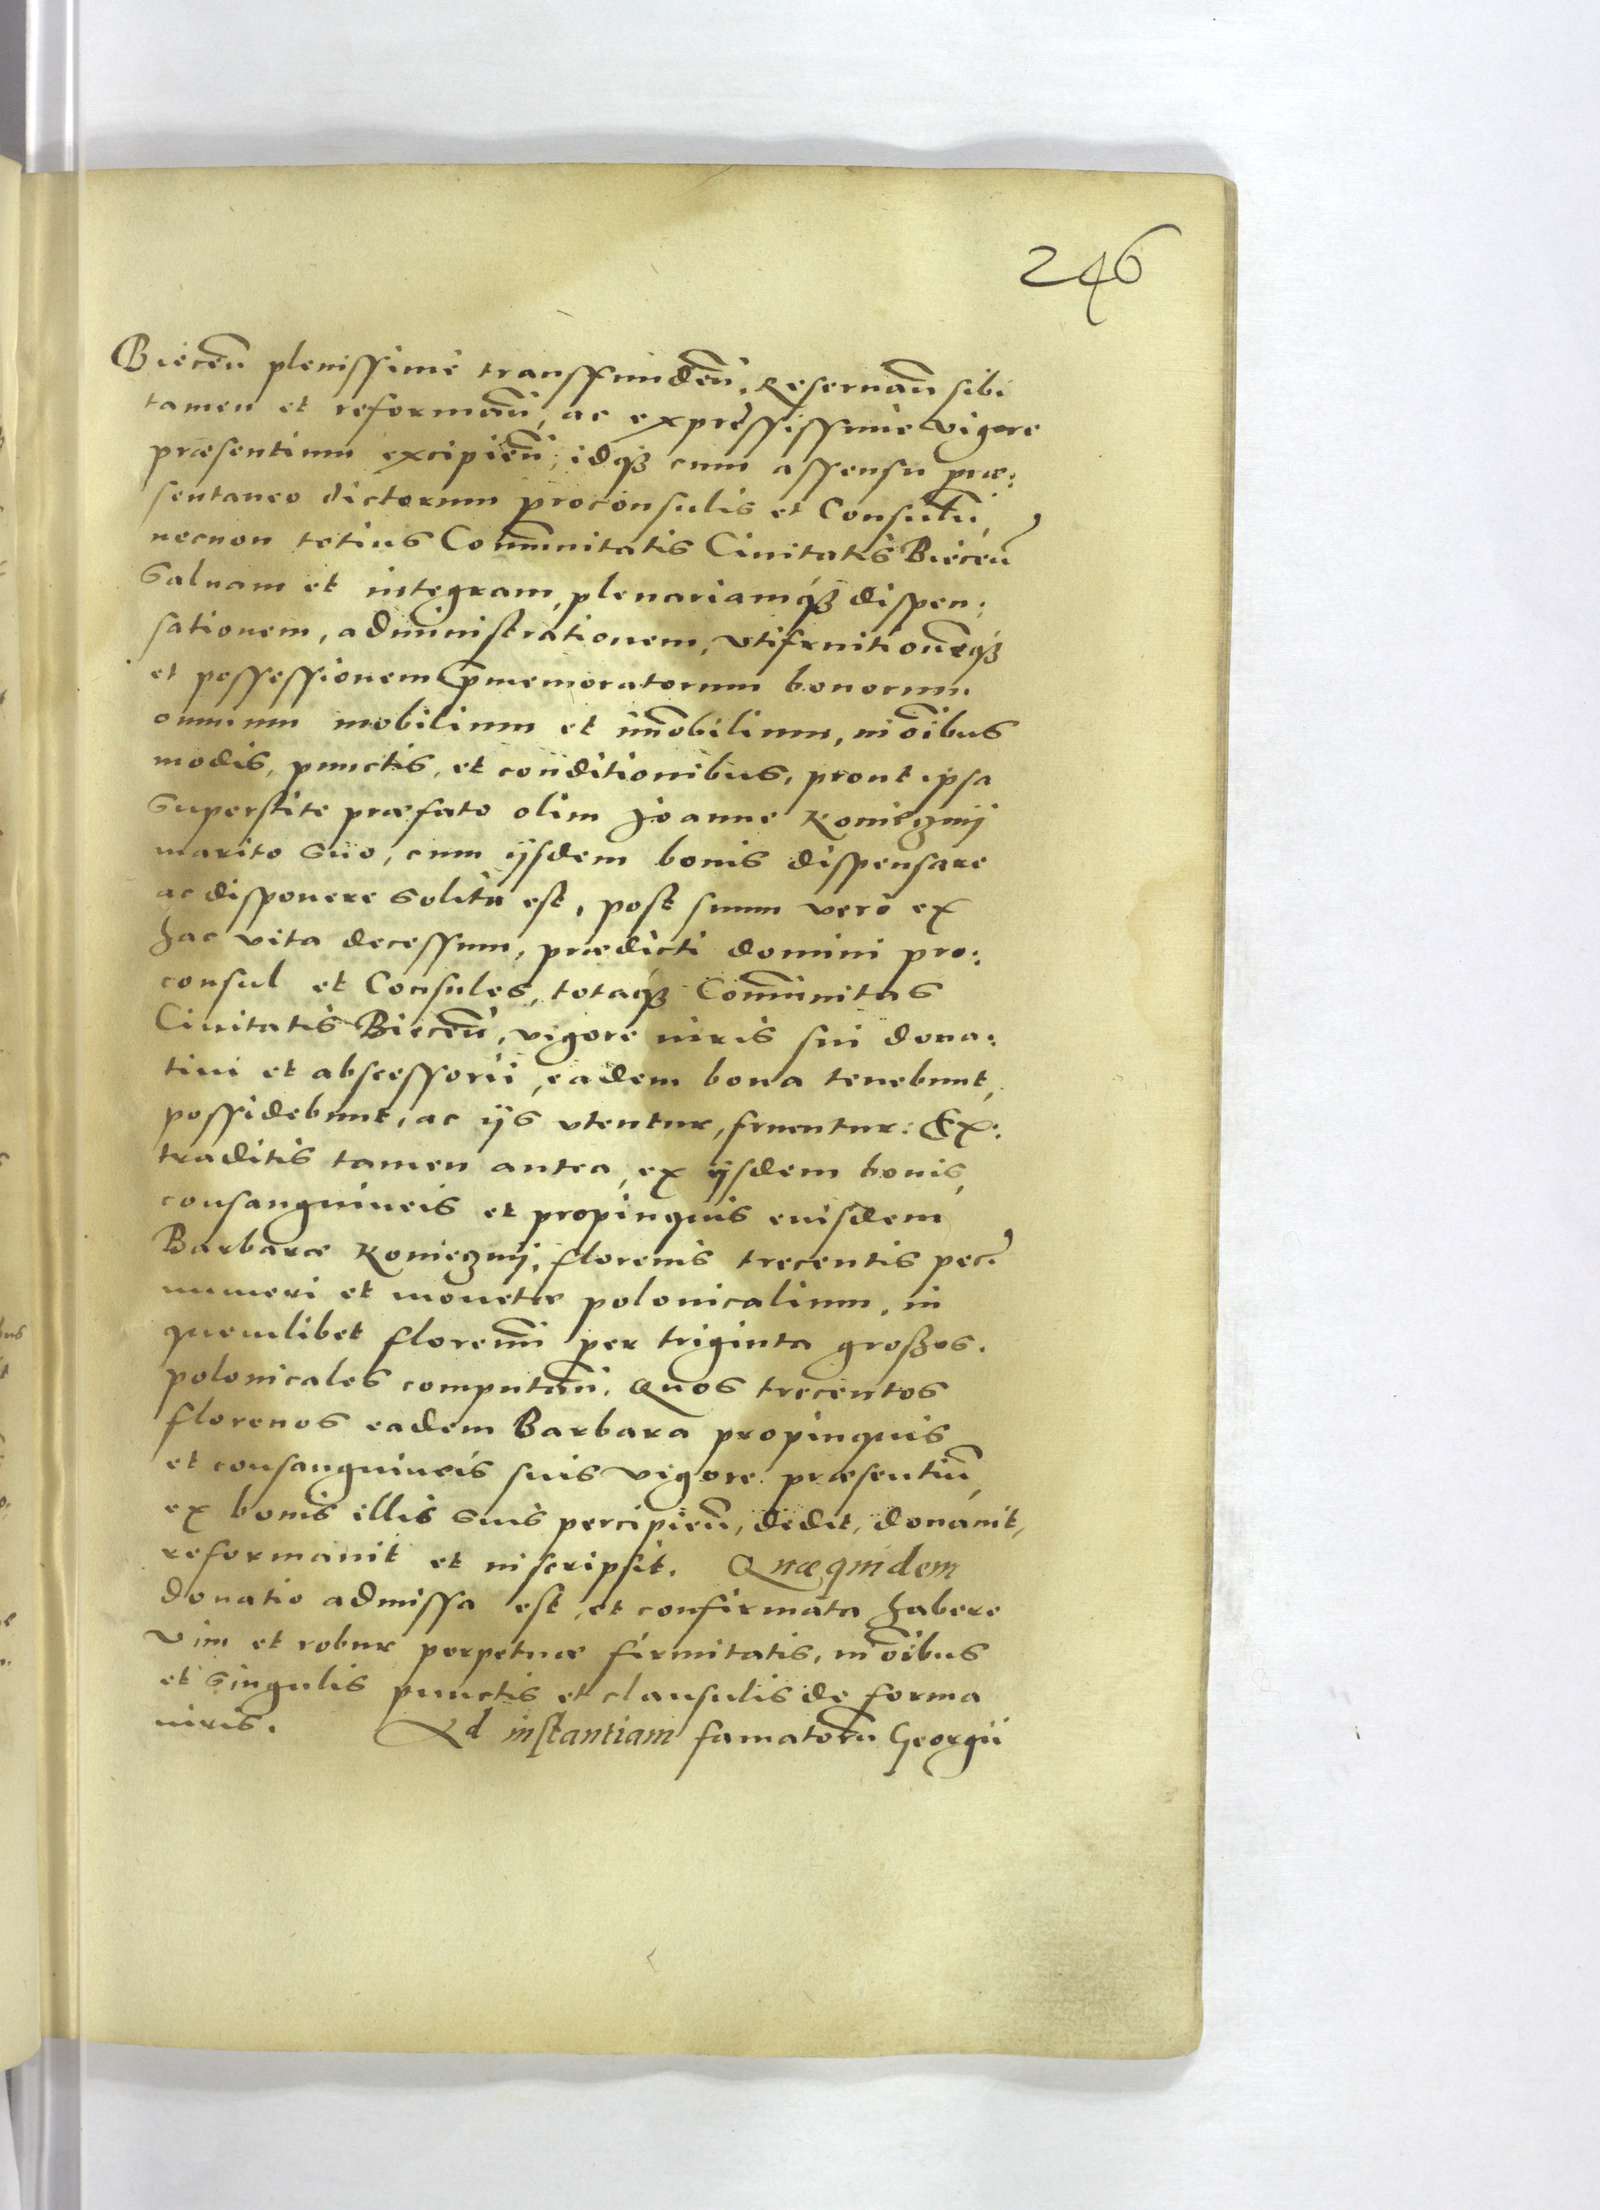 246
Biecen̄ plenissimè transffundēn. Reseruan̄ sibi
tamen et reforman̄, ac expressissimè vigore
præsentium excipien̄, idq̃ȝ cum assensu præ:
sentaneo dictorum proconsulis et Consulū,
necnon totius Com̄unitatis Ciuitatis Biecen̄
saluam et integram, plenariamq́ȝ dispen:
sationem, administrationem, vtifruitionēq́ȝ
et possessionem p̄memoratorum bonorum
omnium mobilium et im̄obilium, in oībus
modis, punctis, et conditionibus, prout ipsa
superstite præfato olim Joanne Koniegznij
marito suo, cum ijsdem bonis dispensare
ac disponere solita est, post suum verò ex
hac vita decessum, prædicti domini pro:
consul et Consules, totaq́ȝ Com̄unitas
Ciuitatis Biecen̄, vigore iuris sui dona:
tiui et abscessorii, eadem bona tenebunt,
possidebunt, ac ijs vtentur, fruentur: Ex:
traditis tamen antea, ex ijsdem bonis,
consanguineis et propinquis eiusdem
Barbaræ Koniegznij, florenis trecentis pec:
numeri et monetæ polonicalium, in
quemlibet florenū per triginta großos.
polonicales computan̄. Quos trecentos
florenos eadem Barbara propinquis
et consanguineis suis vigore præsentiū,
ex bonis illis suis percipien̄, dedit, donauit,
reformauit et inscripsit. Quæquidem
donatio admissa est, et confirmata habere
vim et robur perpetuæ firmitatis, in oībus
et singulis punctis et clausulis de forma
iuris. Ad instantiam famatorū Georgii